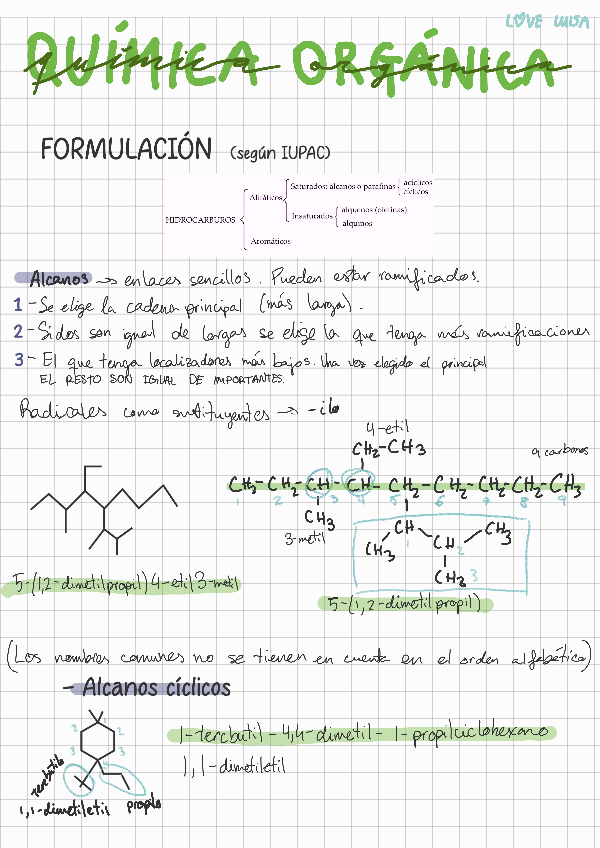 LOVE LUISA
QUÍMICA ORGÁNICA
química orgánica
FORMULACIÓN (según IUPAC)
HIDROCARBUROS
Alifáticos
Saturados: alcanos o parafinas
acíclicos
cíclicos
Insaturados
alquenos (olefinas)
alquinos
Aromáticos
Alcanos → enlaces sencillos. Pueden estar ramificados.
1 - Se elige la cadena principal (más larga).
2 - Si dos son igual de largas se elige la que tenga más ramificaciones
3 - El que tenga localizadores más bajos. Una vez elegido el principal
EL RESTO SON IGUAL DE IMPORTANTES.
Radicales como sustituyentes → -ilo
4-etil
CH2-CH3
9 carbonos
CH3-CH2-CH-CH-CH2-CH2-CH2-CH2-CH3
1 2 3 4 5 6 7 8 9
CH3
3-metil
CH CH3
CH3 CH 2
1
CH3 3
5-(1,2-dimetilpropil)4-etil3-metil
5-(1,2-dimetilpropil)
(Los nombres comunes no se tienen en cuenta en el orden alfabético)
- Alcanos cíclicos
1
2 2
3 3
4
1-tercbutil-4,4-dimetil-1-propilciclohexano
1,1-dimetiletil
tercbutilo
1,1-dimetiletil propilo